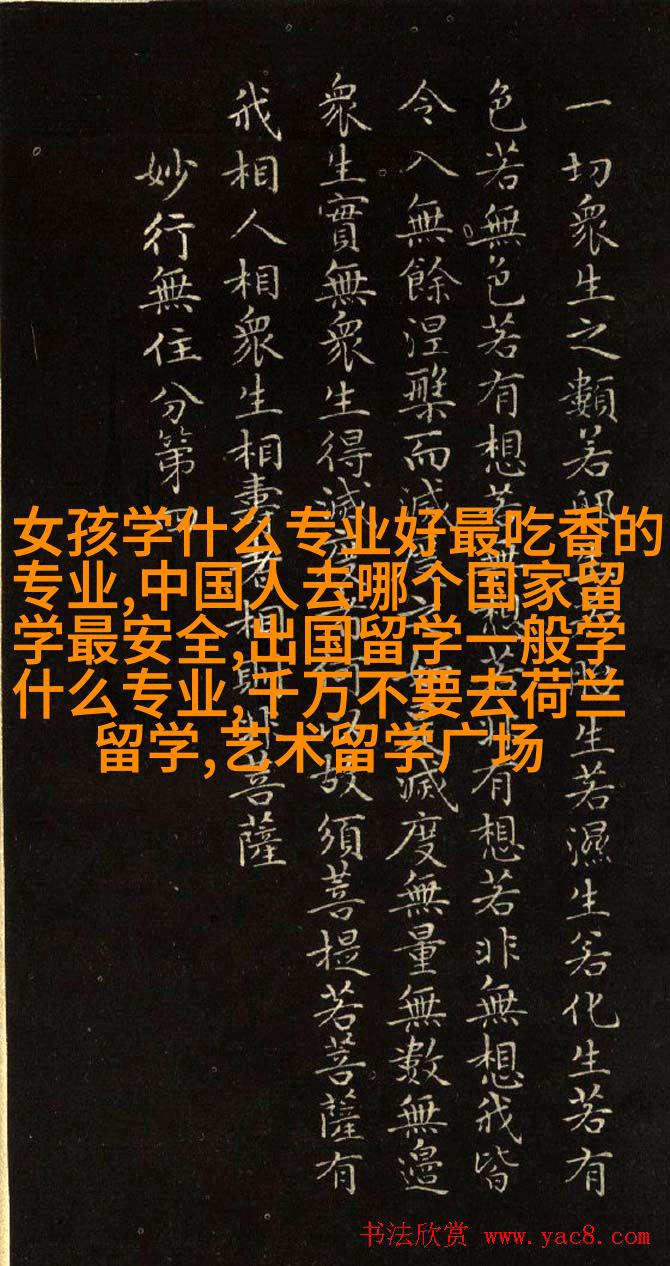 一切衆生之類若卵生若胎生若濕生若化生若有
色若無色若有想若無想若非有想若非無想我皆
令入無餘涅槃而滅度之如是滅度無量無數無邊
衆生實無衆生得滅度者何以故須菩提若菩薩有
我相人相衆生相壽者相即非菩薩
妙行無住分第四
女孩学什么专业好最吃香的
专业,中国人去哪个国家留
学最安全,出国留学一般学
什么专业,千万不要去荷兰
留学,艺术留学广场
书法欣赏 www.yac8.com